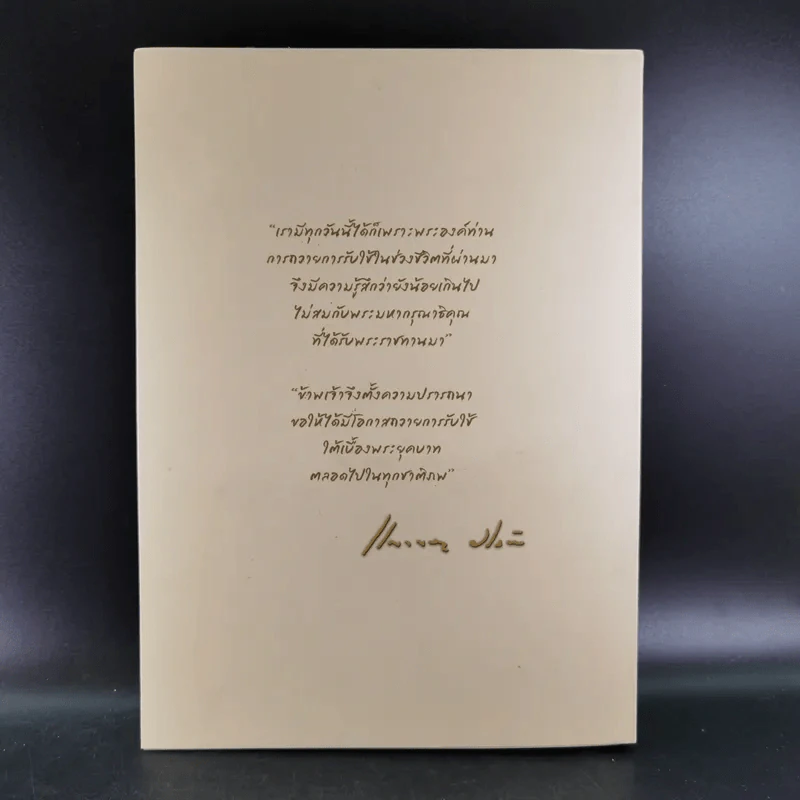 "เรามีทุกวันนี้ได้ก็เพราะพระองค์ท่าน
การถวายการรับใช้ในช่วงชีวิตที่ผ่านมา
จึงมีความรู้สึกว่ายังน้อยเกินไป
ไม่สมกับพระมหากรุณาธิคุณ
ที่ได้รับพระราชทานมา"
"ข้าพเจ้าจึงตั้งความปรารถนา
ขอให้ได้มีโอกาสถวายการรับใช้
ใต้เบื้องพระยุคบาท
ตลอดไปในทุกชาติภพ"